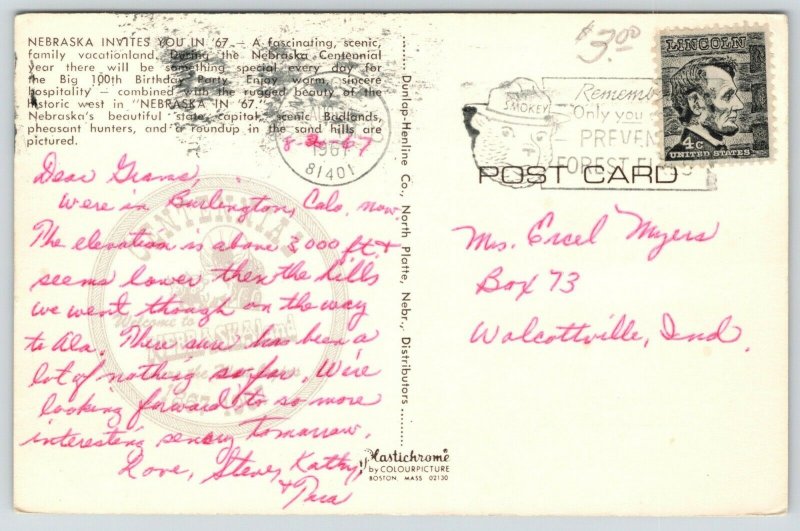 NEBRASKA INVITES YOU IN '67 — A fascinating, scenic,
family vacationland. During the Nebraska Centennial
year there will be something special every day for
the Big 100th Birthday Party. Enjoy warm, sincere
hospitality — combined with the rugged beauty of the
historic west in "NEBRASKA IN '67."
Nebraska's beautiful state capitol, scenic Badlands,
pheasant hunters, and a roundup in the sand hills are
pictured.
8-20-67
1967
81401
$3.00
LINCOLN
4c
UNITED STATES
SMOKEY
Remember
Only you
PREVENT
FOREST FIRES
POST CARD
Dear Grams,
We're in Burlington, Colo. now.
The elevation is above 3000 ft. &
seems lower then the hills
we went though on the way
to Ala. There sure has been a
lot of nothing so far. We're
looking forward to so more
interesting senery tomorrow.
Love, Steve, Kathy,
& Tara
CENTENNIAL
Welcome to
NEBRASKAland
1867
Dunlap-Henline Co., North Platte, Nebr., Distributors
Mrs. Ercel Myers
Box 73
Wolcottville, Ind.
Plastichrome
by COLOURPICTURE
BOSTON MASS 02130